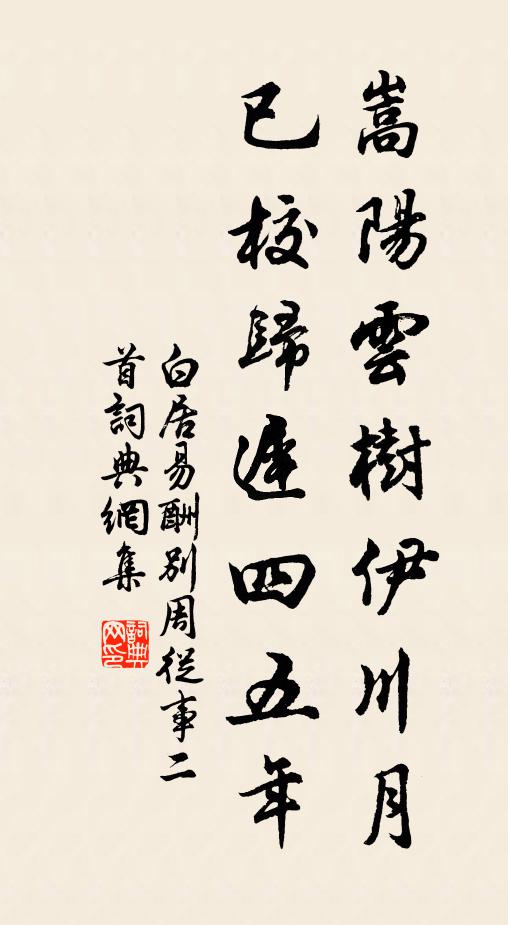 嵩陽雲樹伊川月
已校歸遲四五年
白居易酬別周從事二
首詞典網集
詞典
网印